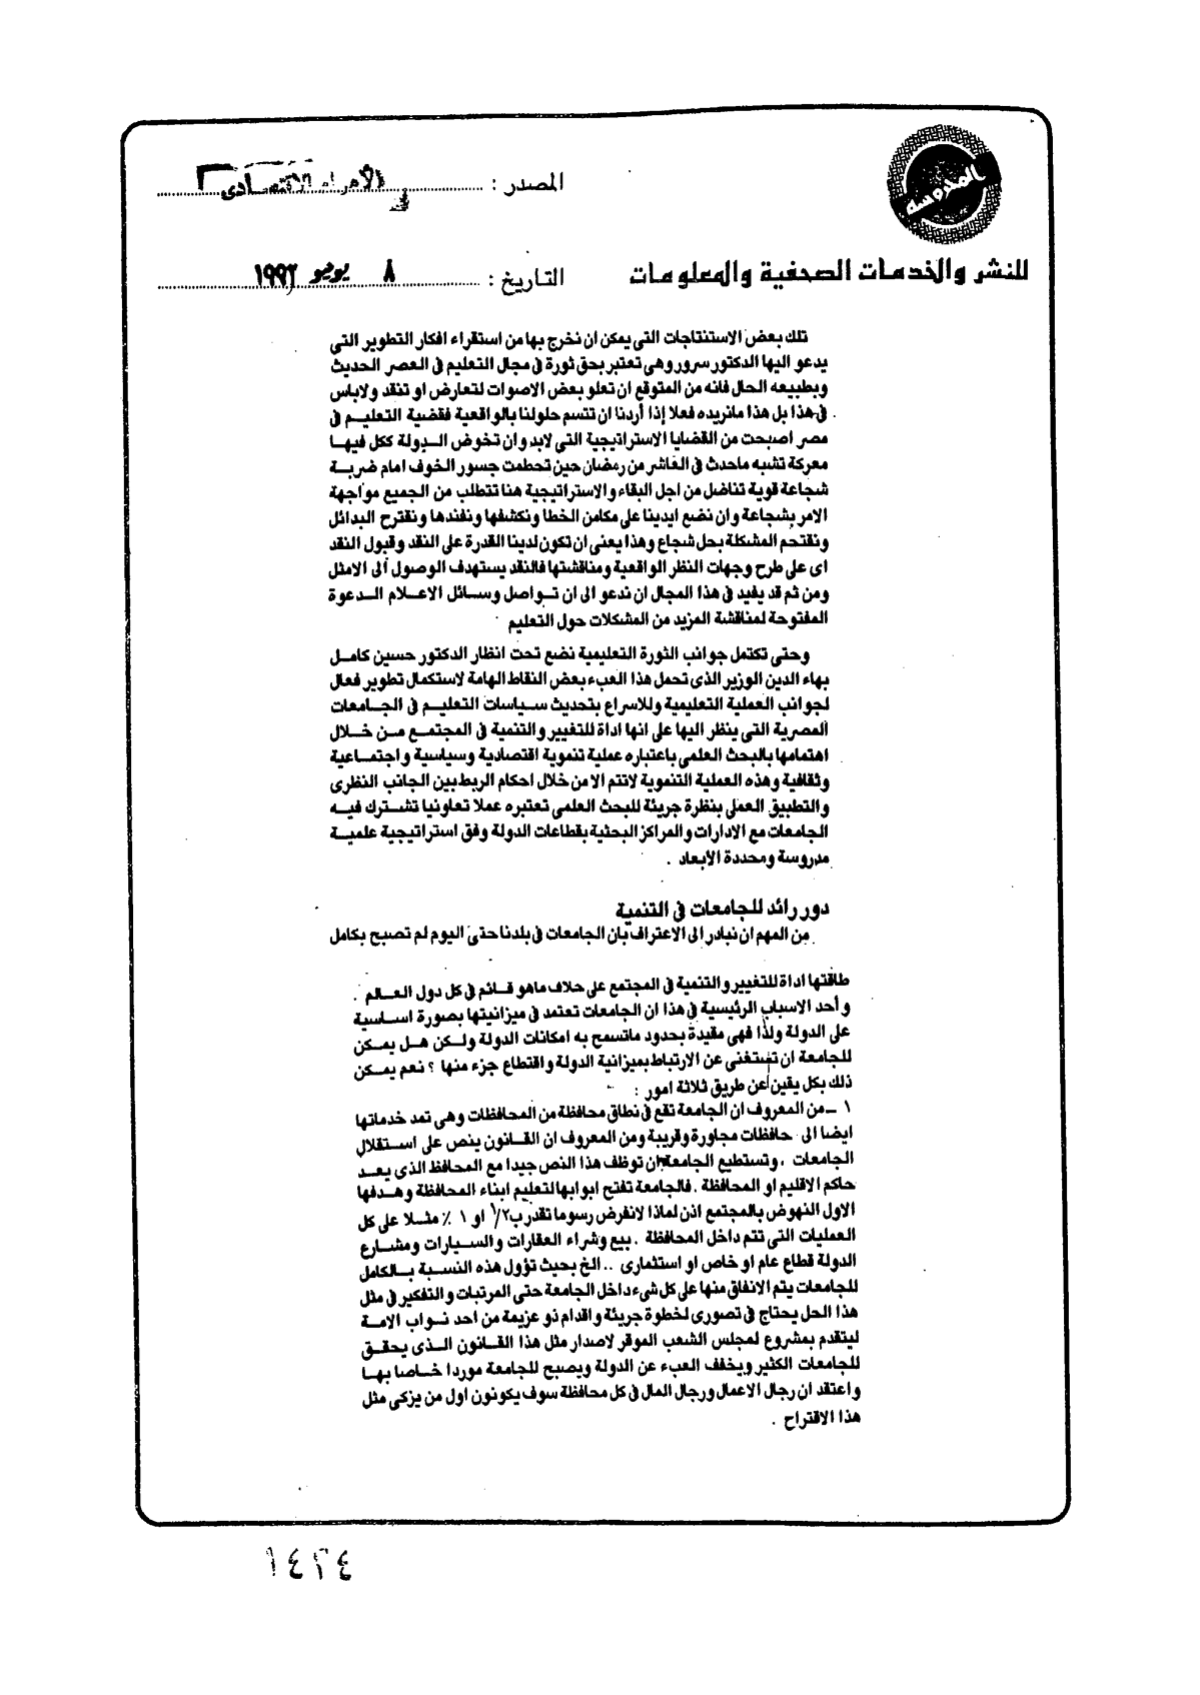 المدروسه
المصدر : الأهرام الاقتصادى
للنشر والخدمات الصحفية والمعلومات
التاريخ : ٨ يونيو ١٩٩٢
تلك بعض الاستنتاجات التى يمكن ان نخرج بها من استقراء افكار التطوير التى
يدعو اليها الدكتور سرور وهى تعتبر بحق ثورة فى مجال التعليم فى العصر الحديث
وبطبيعه الحال فانه من المتوقع ان تعلو بعض الاصوات لتعارض او تنقد ولاباس
فى هذا بل هذا مانريده فعلا إذا أردنا ان تتسم حلولنا بالواقعية فقضية التعليم فى
مصر اصبحت من القضايا الاستراتيجية التى لابد وان تخوض الدولة ككل فيها
معركة تشبه ماحدث فى العاشر من رمضان حين تحطمت جسور الخوف امام ضربة
شجاعة قوية تناضل من اجل البقاء والاستراتيجية هنا تتطلب من الجميع مواجهة
الامر بشجاعة وان نضع ايدينا على مكامن الخطا ونكشفها ونفندها ونقترح البدائل
ونقتحم المشكلة بحل شجاع وهذا يعنى ان تكون لدينا القدرة على النقد وقبول النقد
اى على طرح وجهات النظر الواقعية ومناقشتها فالنقد يستهدف الوصول الى الامثل
ومن ثم قد يفيد فى هذا المجال ان ندعو الى ان تواصل وسائل الاعلام الدعوة
المفتوحة لمناقشة المزيد من المشكلات حول التعليم
وحتى تكتمل جوانب الثورة التعليمية نضع تحت انظار الدكتور حسين كامل
بهاء الدين الوزير الذى تحمل هذا العبء بعض النقاط الهامة لاستكمال تطوير فعال
لجوانب العملية التعليمية وللاسراع بتحديث سياسات التعليم فى الجامعات
المصرية التى ينظر اليها على انها اداة للتغيير والتنمية فى المجتمع من خلال
اهتمامها بالبحث العلمى باعتباره عملية تنموية اقتصادية وسياسية واجتماعية
وثقافية وهذه العملية التنموية لاتتم الا من خلال احكام الربط بين الجانب النظرى
والتطبيق العملى بنظرة جريئة للبحث العلمى تعتبره عملا تعاونيا تشترك فيه
الجامعات مع الادارات والمراكز البحثية بقطاعات الدولة وفق استراتيجية علمية
مدروسة ومحددة الابعاد .
دور رائد للجامعات فى التنمية
من المهم ان نبادر الى الاعتراف بان الجامعات فى بلدنا حتى اليوم لم تصبح بكامل
طاقتها اداة للتغيير والتنمية فى المجتمع على خلاف ماهو قائم فى كل دول العالم .
وأحد الاسباب الرئيسية فى هذا ان الجامعات تعتمد فى ميزانيتها بصورة اساسية
على الدولة ولذا فهى مقيدة بحدود ماتسمح به امكانات الدولة ولكن هل يمكن
للجامعة ان تستغنى عن الارتباط بميزانية الدولة واقتطاع جزء منها ؟ نعم يمكن
ذلك بكل يقين عن طريق ثلاثة امور :
١ ـ من المعروف ان الجامعة تقع فى نطاق محافظة من المحافظات وهى تمد خدماتها
ايضا الى حافظات مجاورة وقريبة ومن المعروف ان القانون ينص على استقلال
الجامعات . وتستطيع الجامعة ان توظف هذا النص جيدا مع المحافظ الذى يعد
حاكم الاقليم او المحافظة . فالجامعة تفتح ابوابها لتعليم ابناء المحافظة وهدفها
الاول النهوض بالمجتمع اذن لماذا لانفرض رسوما تقدر ب ١/٢ او ١ ٪ مثلا على كل
العمليات التى تتم داخل المحافظة . بيع وشراء العقارات والسيارات ومشارع
الدولة قطاع عام او خاص او استثمارى .. الخ بحيث تؤول هذه النسبة بالكامل
للجامعات يتم الانفاق منها على كل شىء داخل الجامعة حتى المرتبات والتفكير فى مثل
هذا الحل يحتاج فى تصورى لخطوة جريئة واقدام ذو عزيمة من احد نواب الامة
ليتقدم بمشروع لمجلس الشعب الموقر لاصدار مثل هذا القانون الذى يحقق
للجامعات الكثير ويخفف العبء عن الدولة ويصبح للجامعة موردا خاصا بها
واعتقد ان رجال الاعمال ورجال المال فى كل محافظة سوف يكونون اول من يزكى مثل
هذا الاقتراح .
١٤٢٤